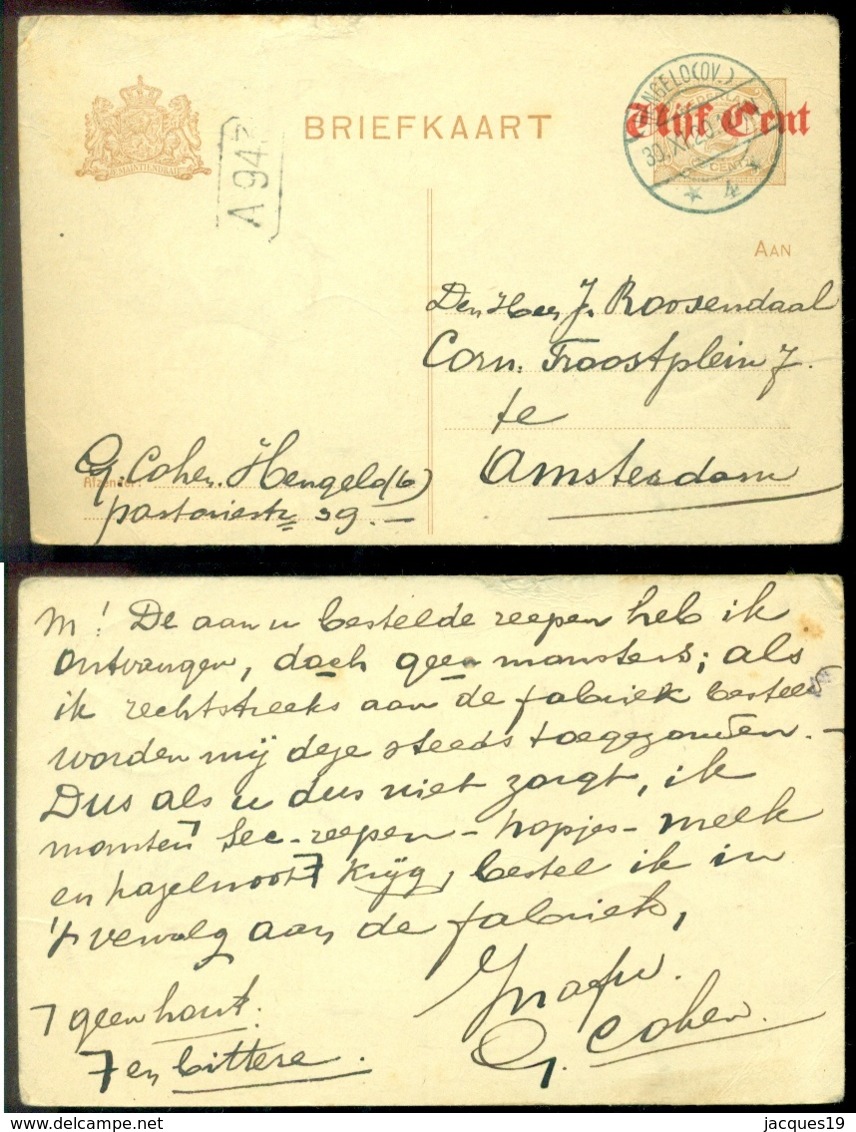 JE MAINTIENDRAI
A 94
BRIEFKAART
HENGELO (OV.)
30.XI.20
4
Vijf Cent
CENT
AAN
Den Heer J. Roosendaal
Corn. Troostplein 7.
te
Amsterdam
Afzender:
G. Cohen. Hengelo (o)
pastoriestr 39. —
M! De aan u bestelde reepen heb ik
ontvangen, doch geen monsters; als
ik rechtstreeks aan de fabriek bestel
worden mij deze steeds toegezonden. —
Dus als u dus niet zorgt, ik
monsters Sec-reepen - hopjes - melk
en hazelnoot 7 krijg, bestel ik in
't vervolg aan de fabriek,
G. Cohen.
7 geen hout.
7 en bittere.
jacques19